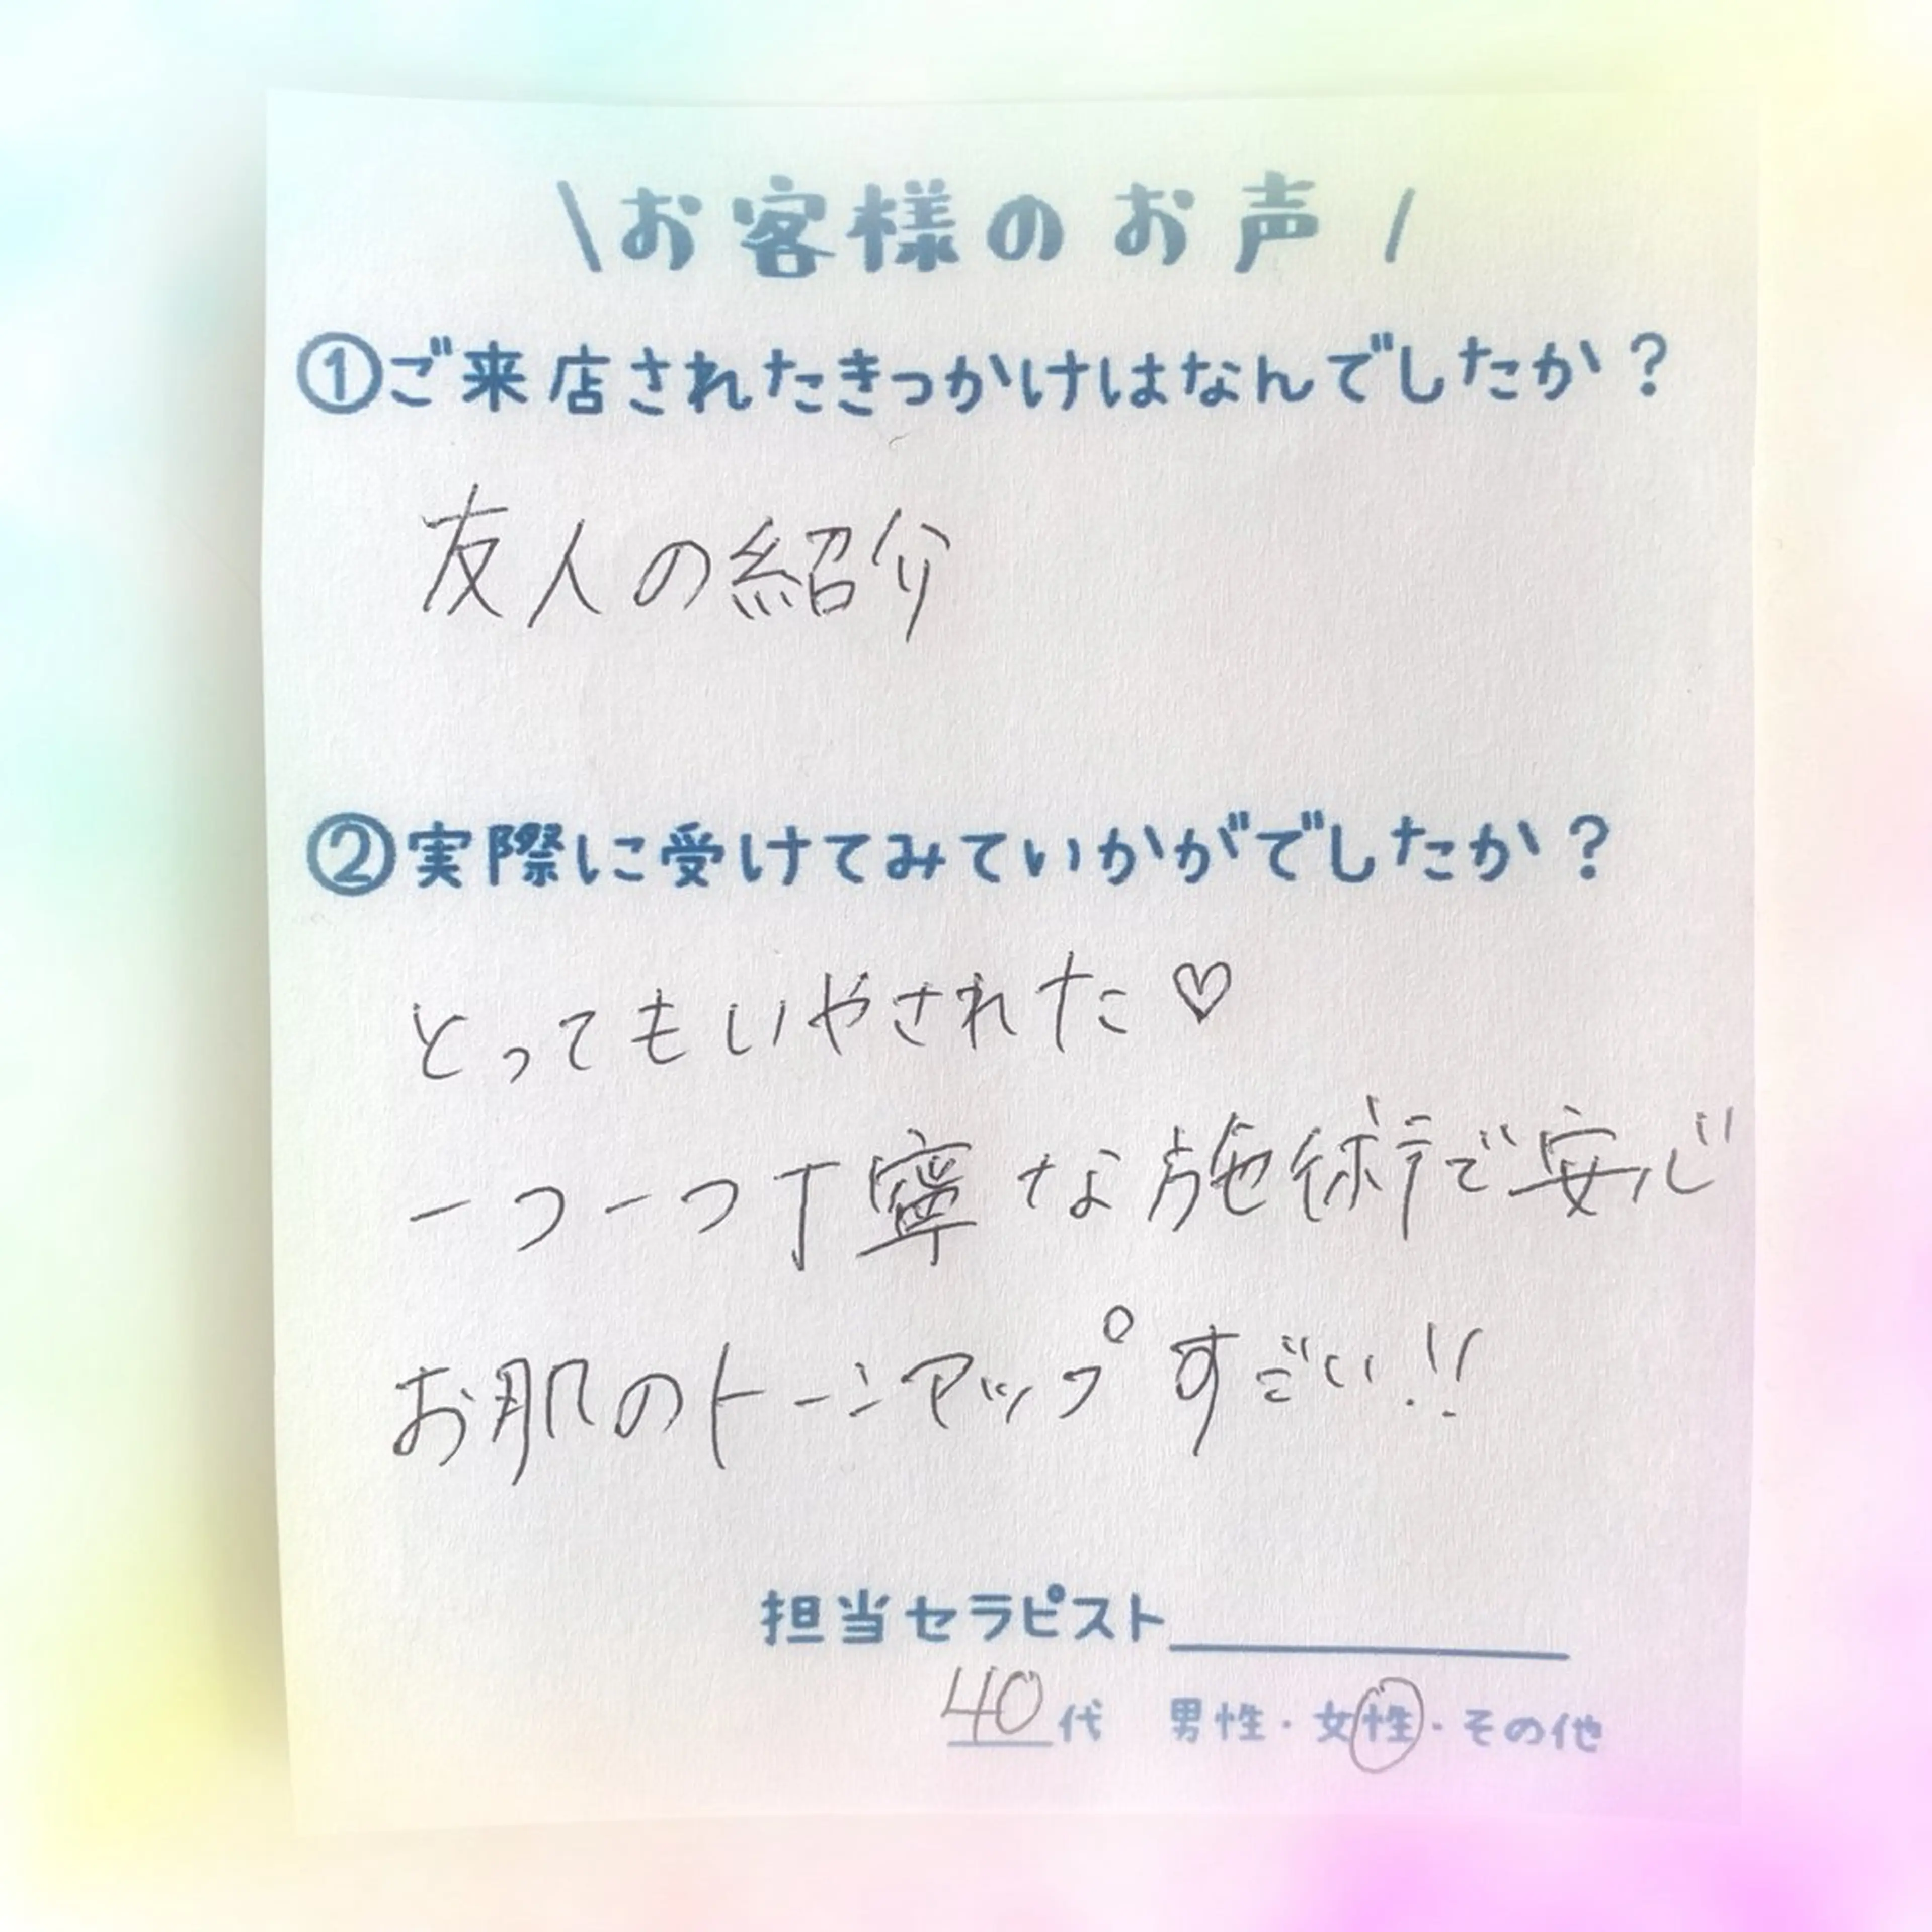 \お客様のお声/
①ご来店されたきっかけはなんでしたか？
友人の紹介
②実際に受けてみていかがでしたか？
とってもいやされた♡
一つ一つ丁寧な施術で安心
お肌のトーンアップすごい!!
担当セラピスト
40代 男性・女性・その他